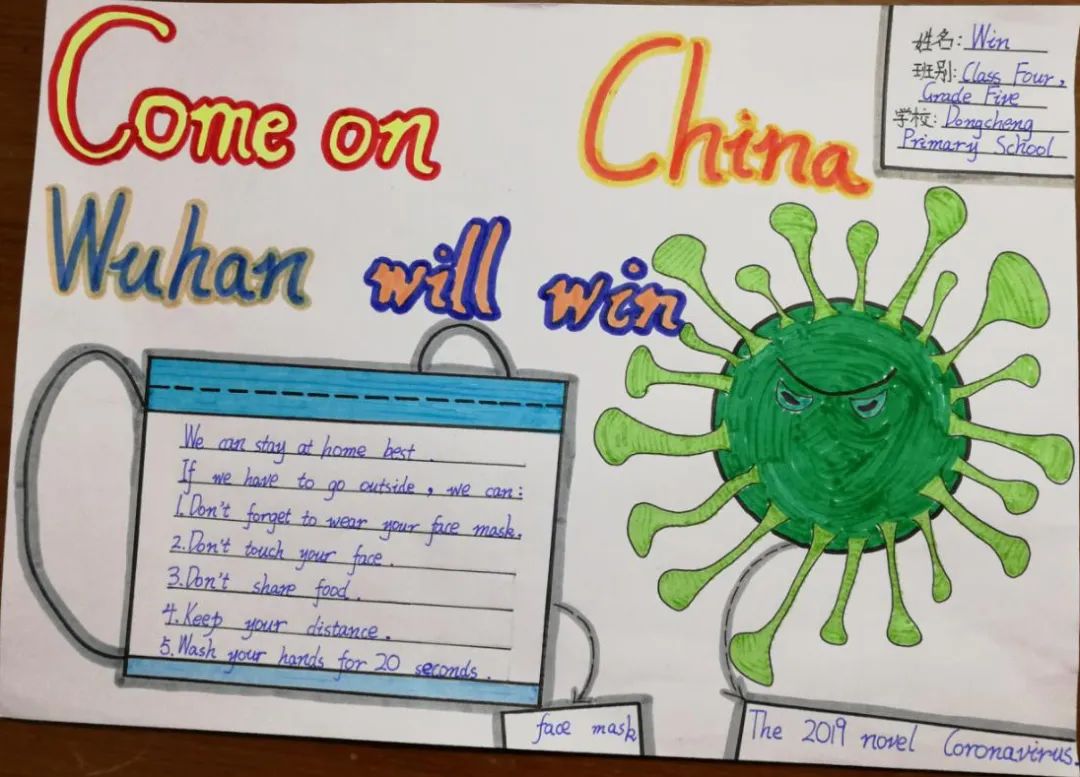 Come on China
姓名: Win
班别: Class Four,
Grade Five
学校: Dongcheng
Primary School
Wuhan will win
We can stay at home best.
If we have to go outside, we can:
1.Don't forget to wear your face mask.
2.Don't touch your face.
3.Don't share food.
4.Keep your distance.
5.Wash your hands for 20 seconds.
face mask
The 2019 novel Coronavirus.